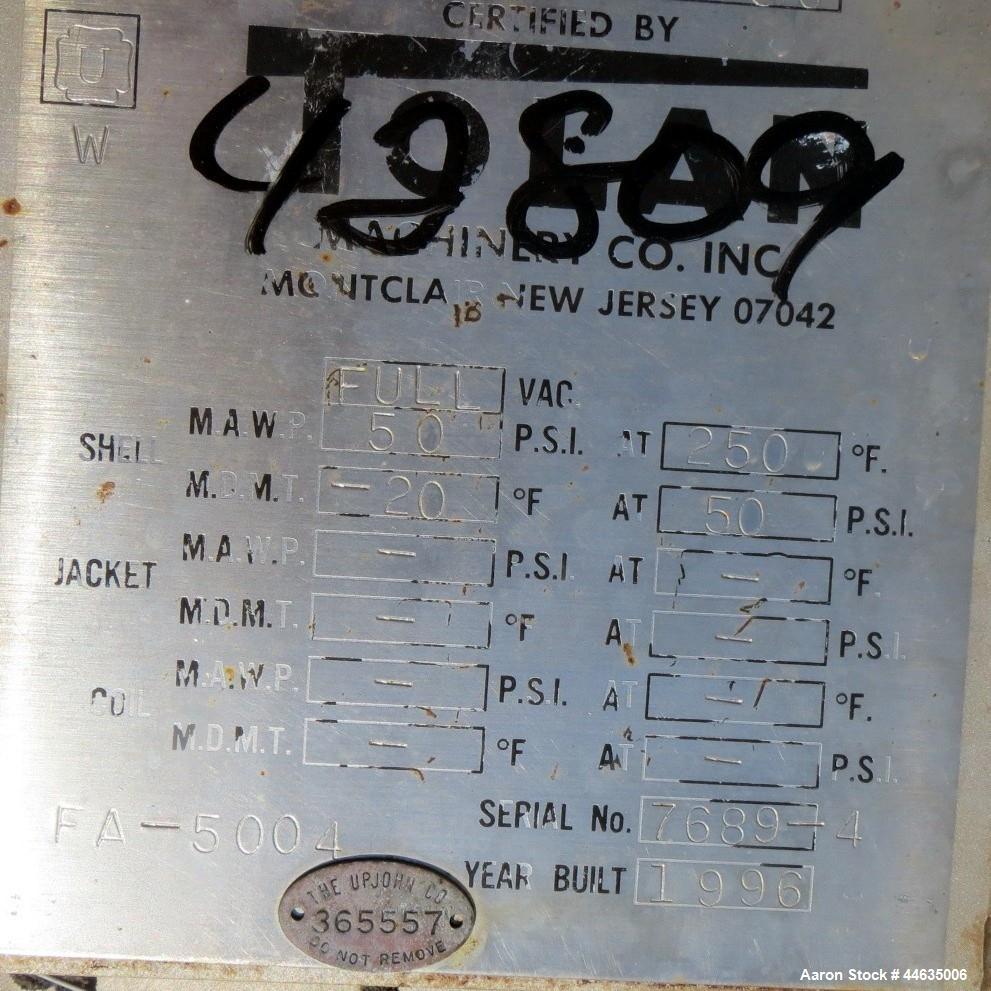 CERTIFIED BY
U
W
42809
MACHINERY CO. INC
MONTCLAIR NEW JERSEY 07042
FULL VAC.
SHELL M.A.W.P. 50 P.S.I. AT 250 °F.
M.D.M.T. -20 °F AT 50 P.S.I.
JACKET M.A.W.P. - P.S.I. AT - °F.
M.D.M.T. - °F AT - P.S.I.
COIL M.A.W.P. - P.S.I. AT - °F.
M.D.M.T. - °F AT - P.S.I.
SERIAL No. 7689-4
FA-5004
YEAR BUILT 1996
THE UPJOHN CO
365557
DO NOT REMOVE
Aaron Stock # 44635006